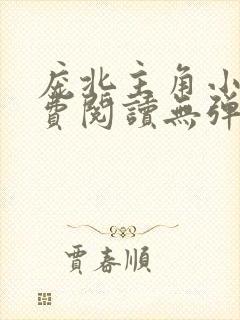 庞北主角小
費閱讀無彈
賈春順